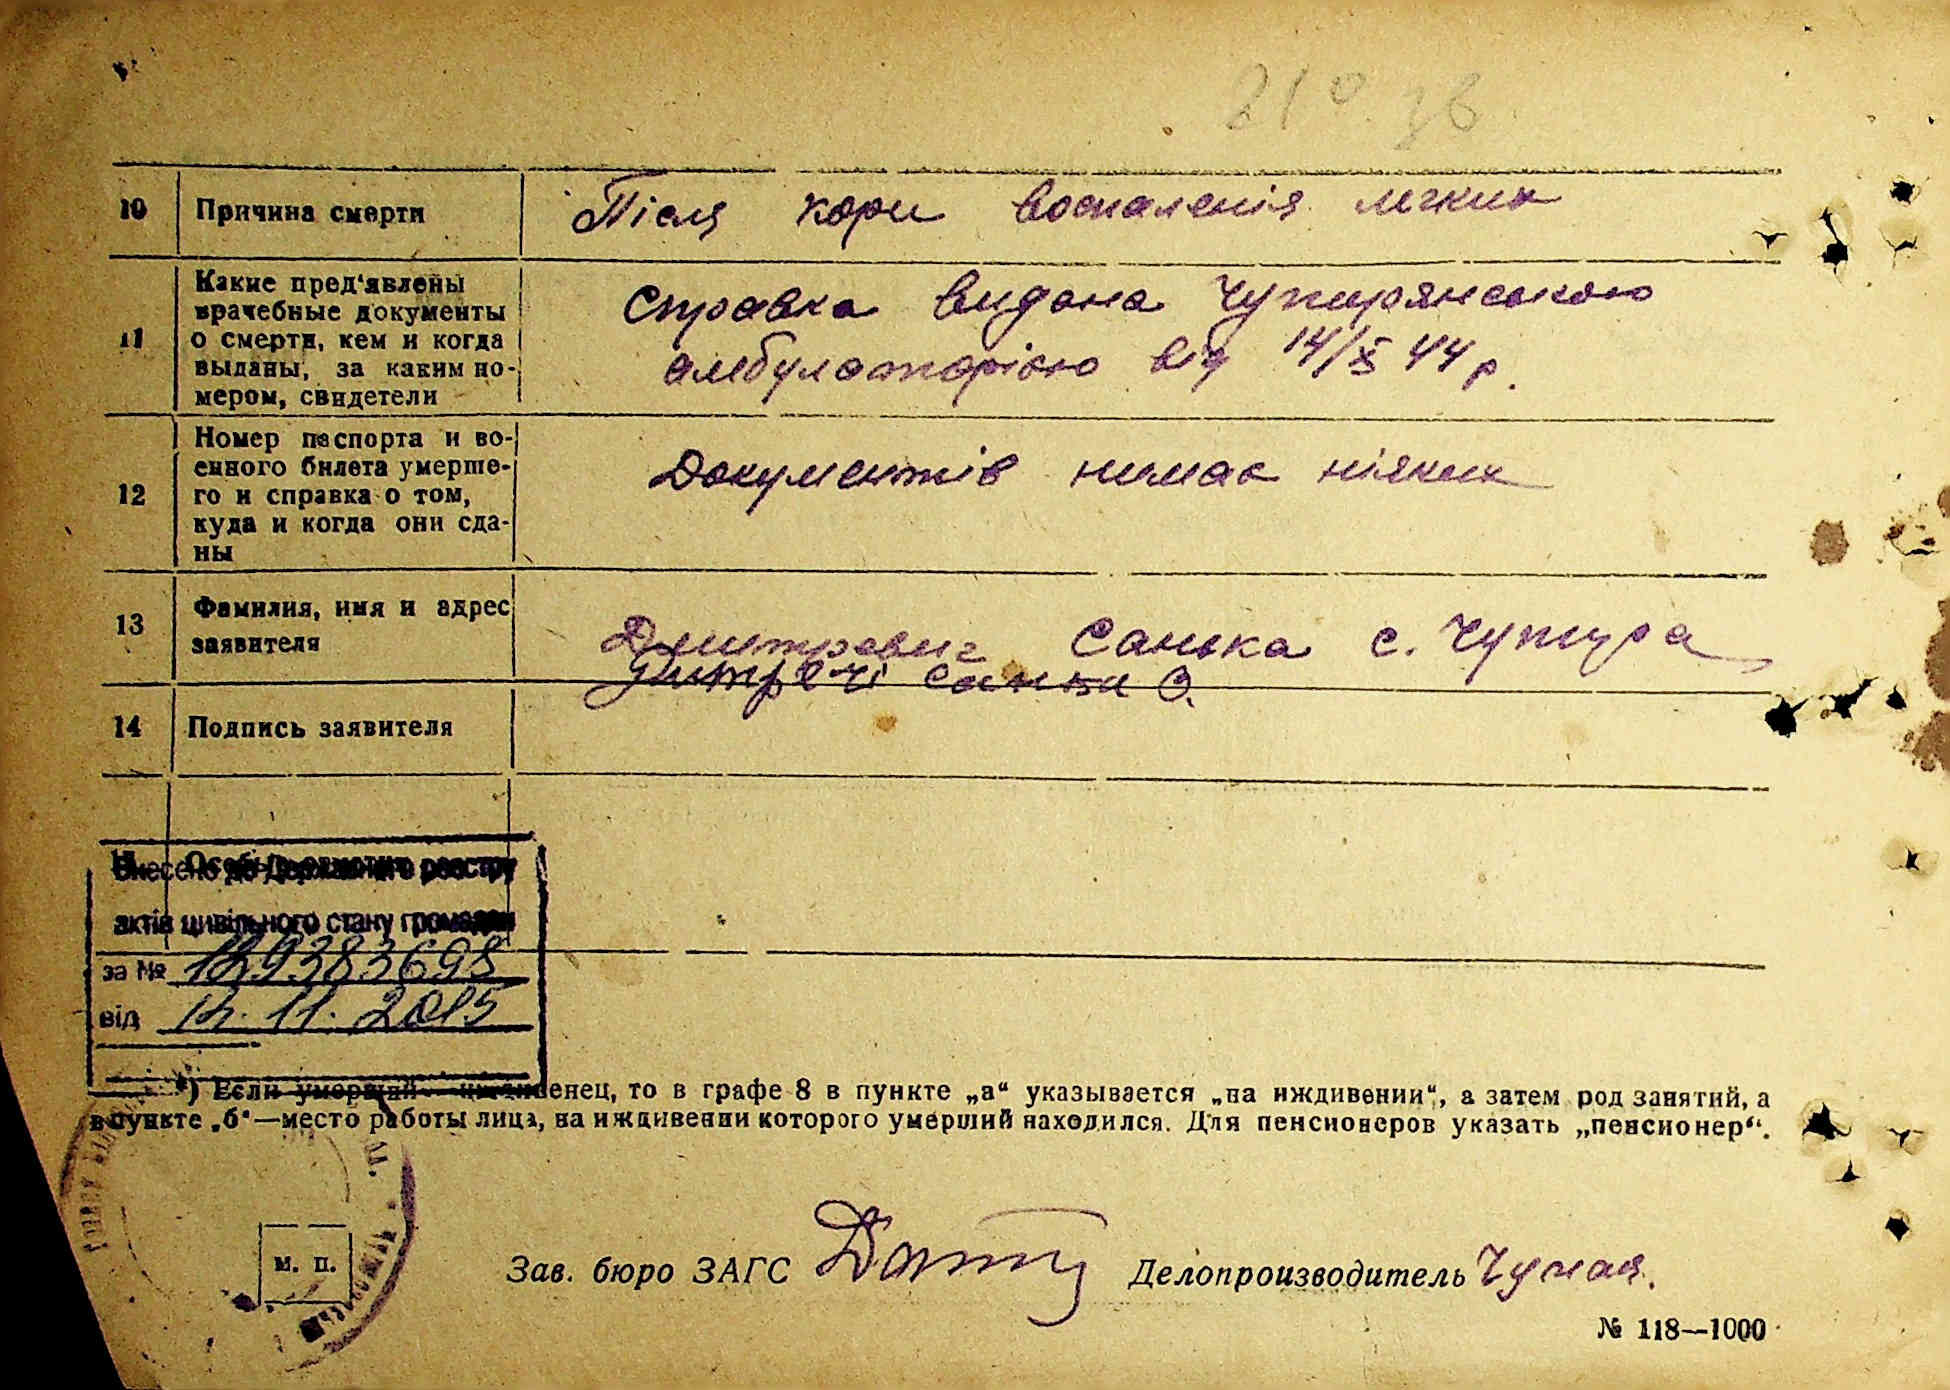 10 Причина смерти Після кори воспаленія легких
11 Какие пред'явлены
врачебные документы
о смерти, кем и когда
выданы, за каким но-
мером, свидетели
Справка видана Чупирянською
амбулаторією від 14/X 44 р.
12 Номер паспорта и во-
енного билета умерше-
го и справка о том,
куда и когда они сда-
ны
Документів нимає ніяких
13 Фамилия, имя и адрес
заявителя
Санька с. Чупира
14 Подпись заявителя
Внесено до Державного реєстру
актів цивільного стану громадян
за №
від 12. 11. 2015
*) Если умерший иждивенец, то в графе 8 в пункте „а“ указывается „на иждивении“, а затем род занятий, а
в пункте „б“—место работы лица, на иждивении которого умерший находился. Для пенсионеров указать „пенсионер“.
м. п.
Зав. бюро ЗАГС Делопроизводитель
№ 118—1000